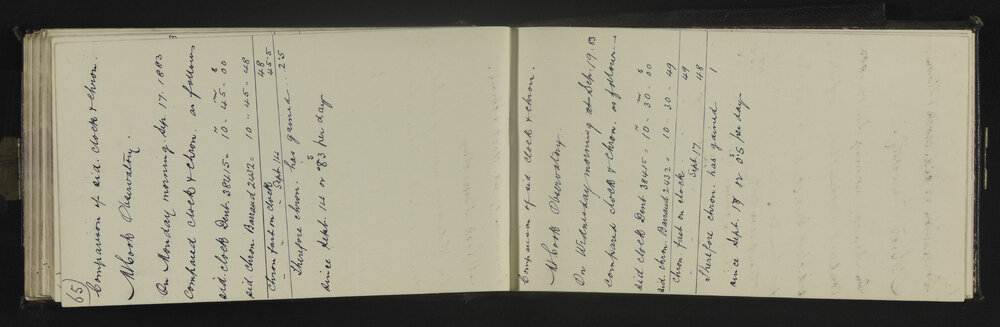 65
Comparison of sid. clock & chron.
At Cook Observatory.
On Monday morning Sep. 17. 1883
Compared clock & chron. as follows
h m s
sid. clock Dent 38415 = 10 - 45 - 00
sid. chron. Barraud 2432 = 10 - 45 - 48
Chron. fast on clock 48
" " " Sept 14 45.5
Therefore chron. has gained 2.5
since Sept. 14 or 0.83 per day
Comparison of sid. clock & chron.
At Cook Observatory.
On Wednesday morning Sep. 19. 83
compared clock & chron. as follows
h m s
sid clock Dent 38415 = 10 - 30 - 00
sid. chron. Barraud 2432 = 10 - 30 - 49
Chron. fast on clock 49
" " " Sept 17 48
Therefore chron has gained 1
since Sept. 17 or 0.5 per day